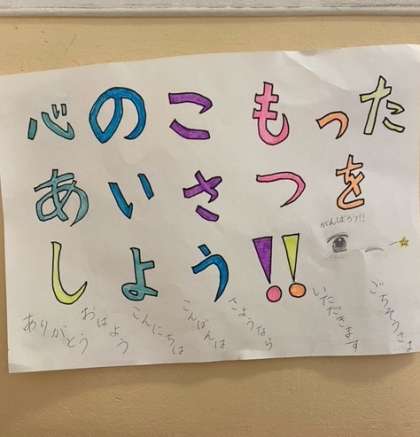 心のこもった
あいさつを
しよう!!
がんばろう!!
ありがとう
おはよう
こんにちは
こんばんは
さようなら
いただきます
ごちそうさま